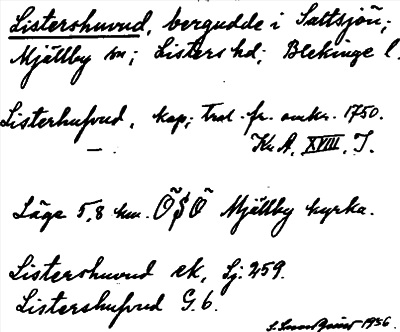 Listershuvud, bergudde i Saltsjön;
Mjällby sn; Listers hd; Blekinge l.
Listerhufvud, kap; trol. fr. omkr. 1750.
— Kr. A. XVIII. I.
Läge 5,8 km. ÖSÖ Mjällby kyrka.
Listershuvud ek, Sj. 259.
Listershufvud G. 6.
1936